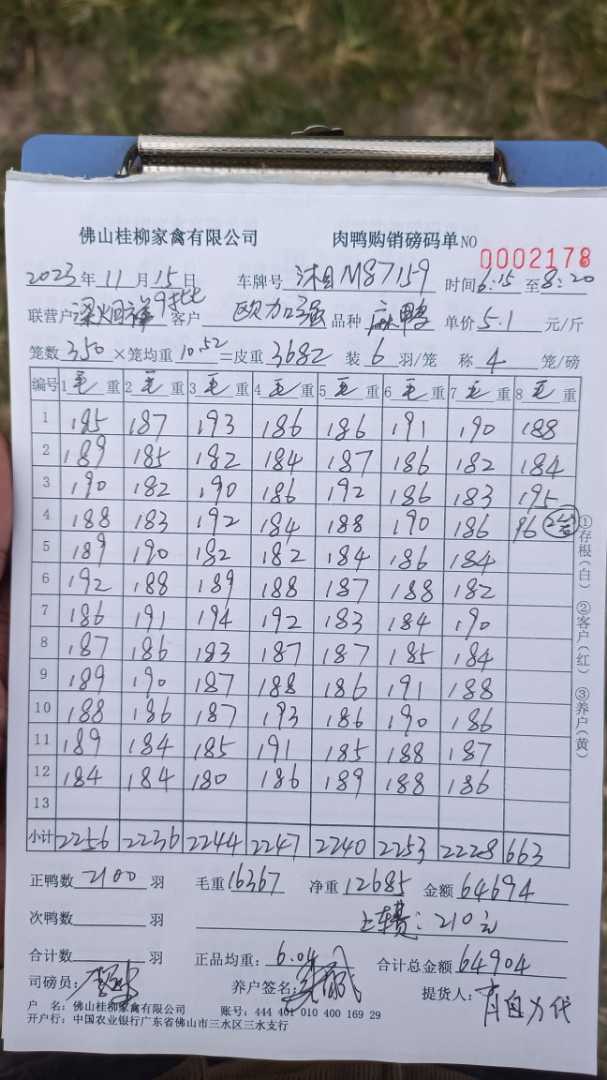 佛山桂柳家禽有限公司 肉鸭购销磅码单 NO 0002178
2023年11月15日 车牌号 M87159 时间6:15至8:20
联营户 客户 欧加强 品种 麻鸭 单价5.1元/斤
笼数350×笼均重10.52=皮重3682 装6羽/笼 称4笼/磅
编号 1毛重 2毛重 3毛重 4毛重 5毛重 6毛重 7毛重 8毛重
1 185 187 193 186 186 191 190 188
2 189 185 182 184 187 186 182 184
3 190 182 190 186 192 186 183 195
4 188 183 192 184 188 190 186 96
5 189 190 182 182 184 186 184
6 192 188 189 188 187 188 182
7 186 191 194 192 183 184 190
8 187 186 183 187 187 185 184
9 189 190 187 188 186 191 188
10 188 186 187 193 186 190 186
11 189 184 185 191 185 188 187
12 184 184 180 186 189 188 186
13
小计 2256 2236 2244 2247 2240 2253 2228 663
①存根(白) ②客户(红) ③养户(黄)
正鸭数2100羽 毛重16367 净重12685 金额64694
次鸭数 羽 上车费:210元
合计数 羽 正品均重:6.04 合计总金额64904
司磅员: 养户签名: 提货人:
户 名:佛山桂柳家禽有限公司 账号:444 401 010 400 169 29
开户行:中国农业银行广东省佛山市三水区三水支行